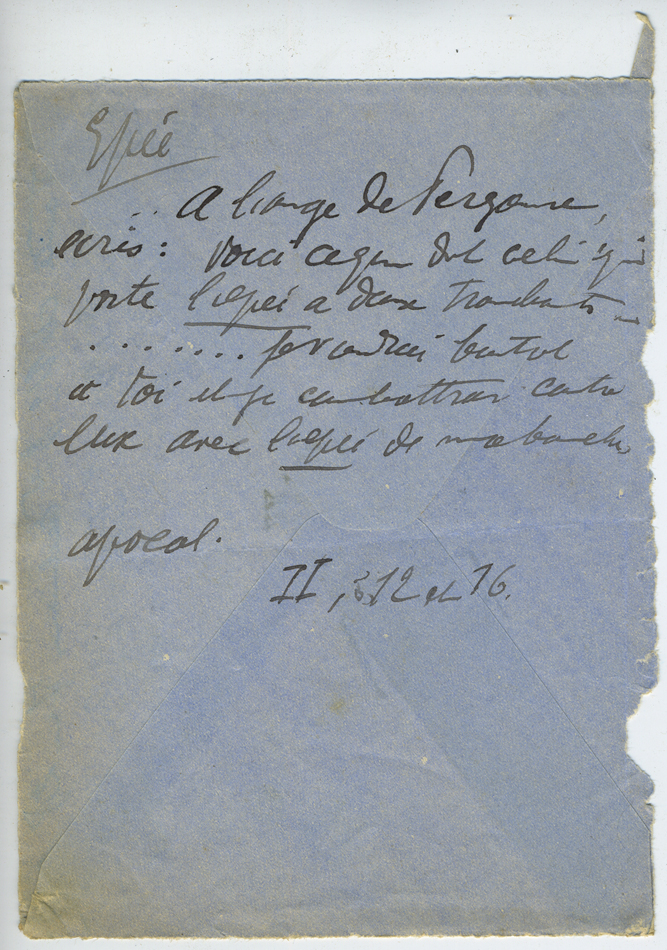 Epée
... A l'ange de Pergame,
écris: voici ce que dit celui qui
porte l'epée a deux tranchants
........ je viendrai bientot
a toi et je combattrai contre
eux avec l'epée de ma bouche
apocal.
II, 12 et 16.